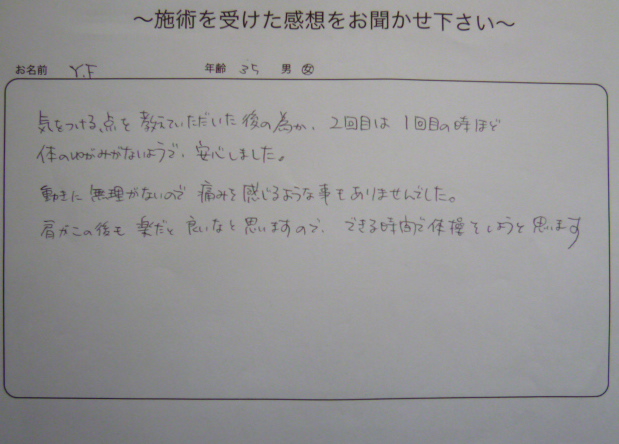 ～施術を受けた感想をお聞かせ下さい～
お名前 Y.F 年齢 35 男 女
気をつける点を教えていただいた後の為か、2回目は1回目の時ほど
体のゆがみがないようで、安心しました。
動きに無理がないので痛みを感じるような事もありませんでした。
肩がこの後も楽だと良いなと思いますので、できる時間で体操をしようと思います